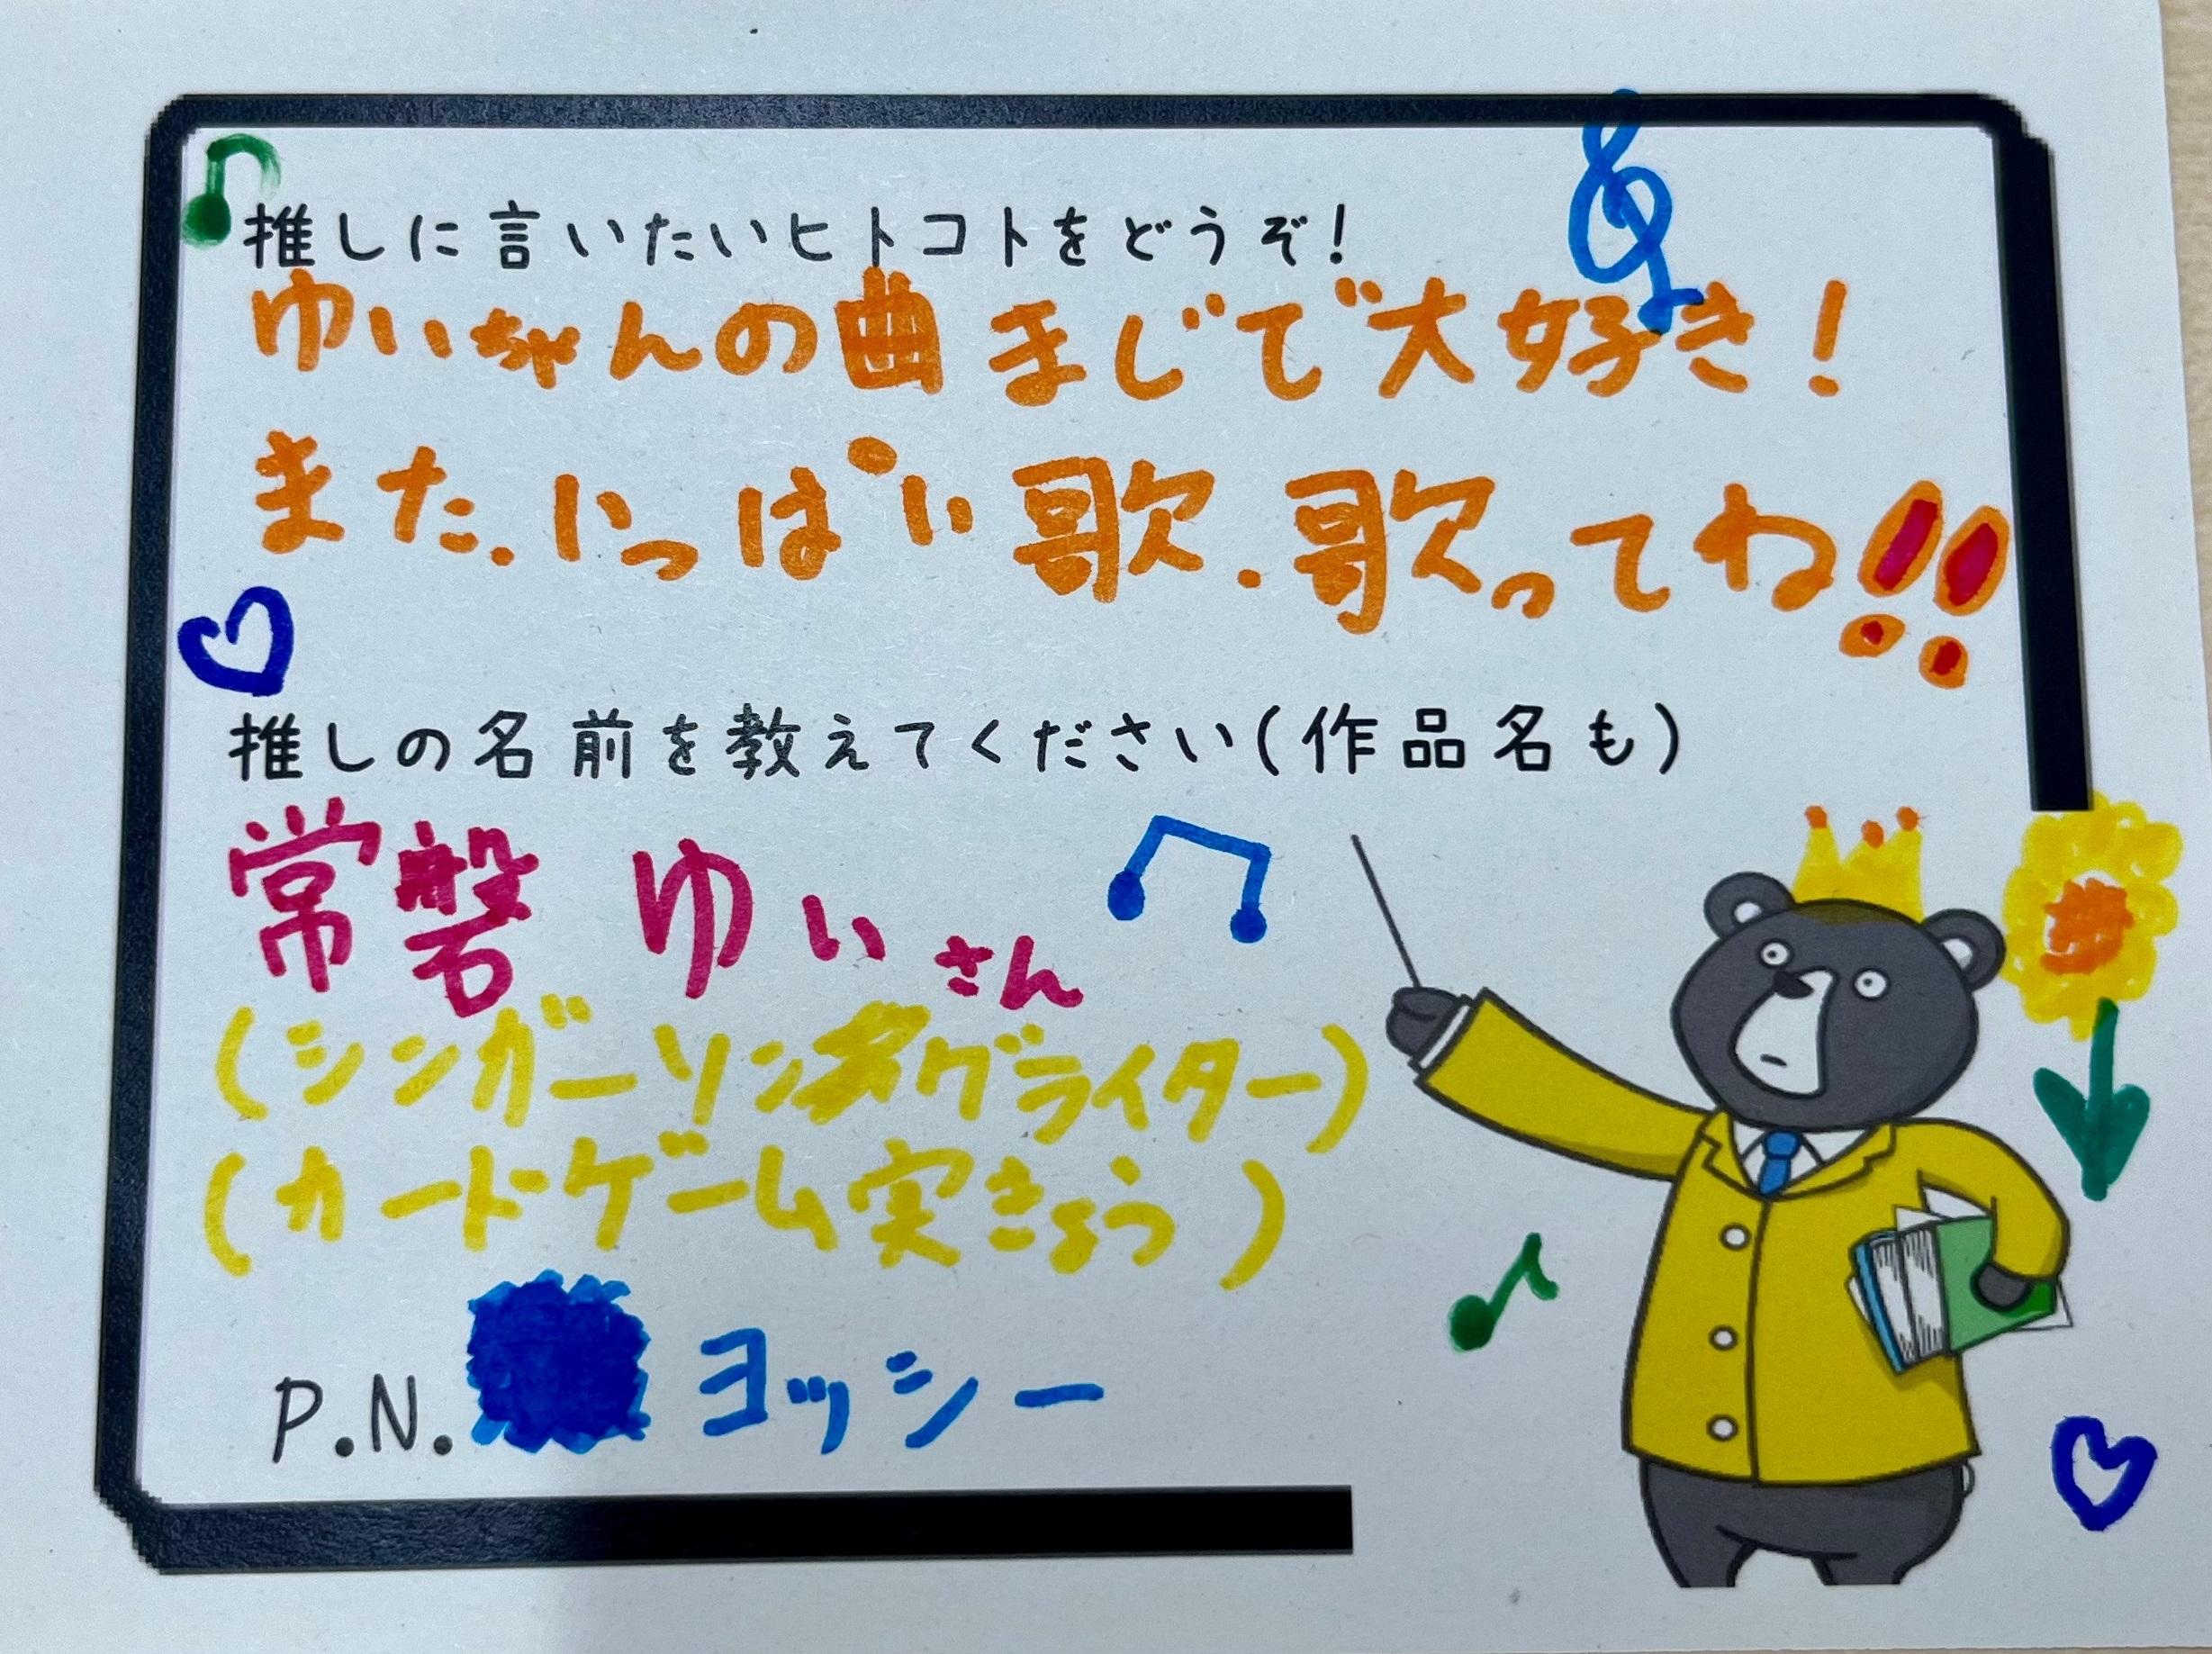 推しに言いたいヒトコトをどうぞ!
ゆいちゃんの曲まじで大好き!
また.いっぱい歌.歌ってね!!
推しの名前を教えてください(作品名も)
常磐ゆいさん
(シンガーソングライター)
(カードゲーム実きょう)
P.N. ヨッシー